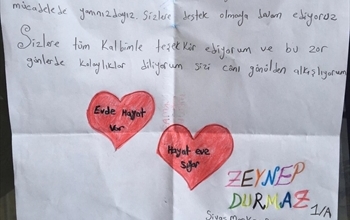 mücadelede yanınızdayız. Sizlere destek olmaya devam ediyoruz
Sizlere tüm Kalbimle teşekkür ediyorum ve bu zor
günlerde kolaylıklar diliyorum sizi canı gönülden alkışlıyorum
Evde Hayat
Var
Hayat eve
Sığar
ZEYNEP
DURMAZ
1/A
Sivas